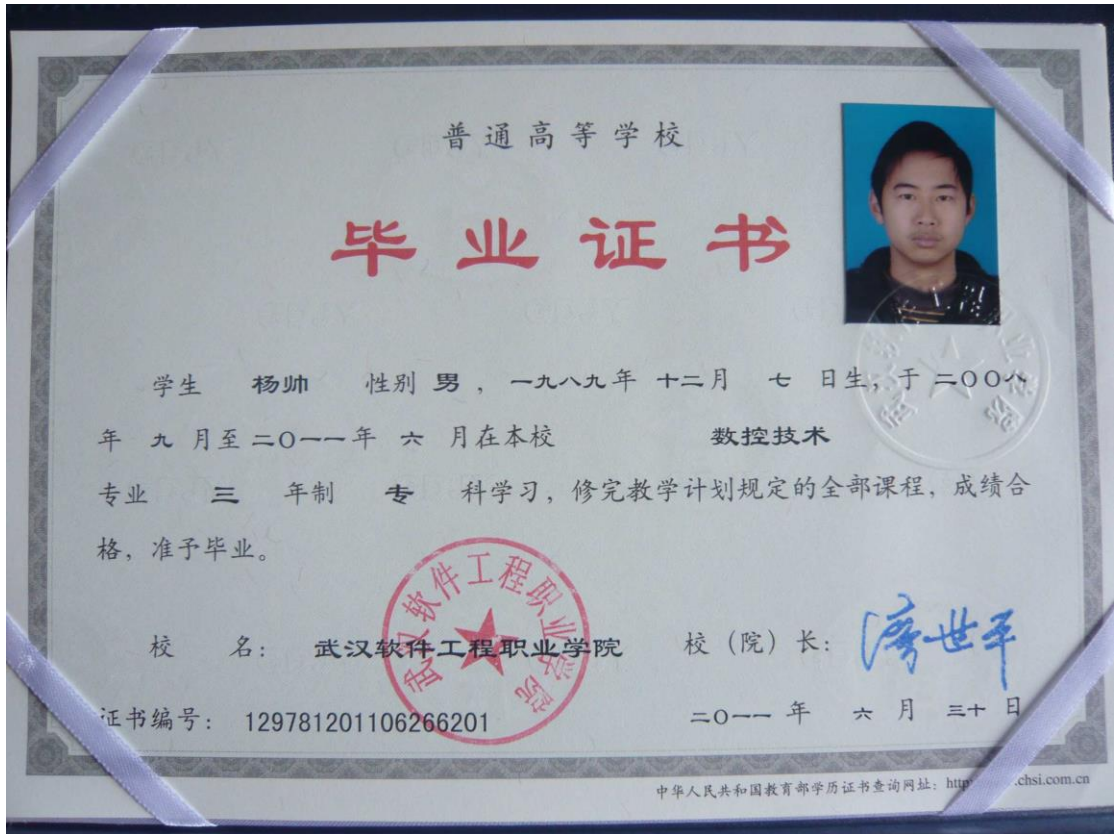 普通高等学校
毕业证书
学生 杨帅 性别 男，一九八九年 十二月 七 日生，于 二〇〇八
年 九 月至 二〇一一年 六 月在本校 数控技术
专业 三 年制 专 科学习，修完教学计划规定的全部课程，成绩合
格，准予毕业。
武汉软件工程职业学院
校 名： 武汉软件工程职业学院 校（院）长：
证书编号： 129781201106266201 二〇一一 年 六 月 三十 日
中华人民共和国教育部学历证书查询网址：http chsi.com.cn